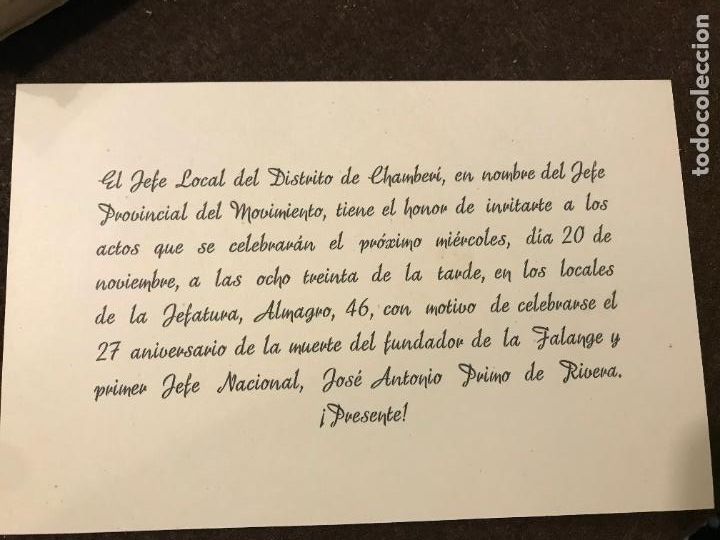 El Jefe Local del Distrito de Chamberí, en nombre del Jefe
Provincial del Movimiento, tiene el honor de invitarte a los
actos que se celebrarán el próximo miércoles, día 20 de
noviembre, a las ocho treinta de la tarde, en los locales
de la Jefatura, Almagro, 46, con motivo de celebrarse el
27 aniversario de la muerte del fundador de la Falange y
primer Jefe Nacional, José Antonio Primo de Rivera.
¡Presente!
todocoleccion